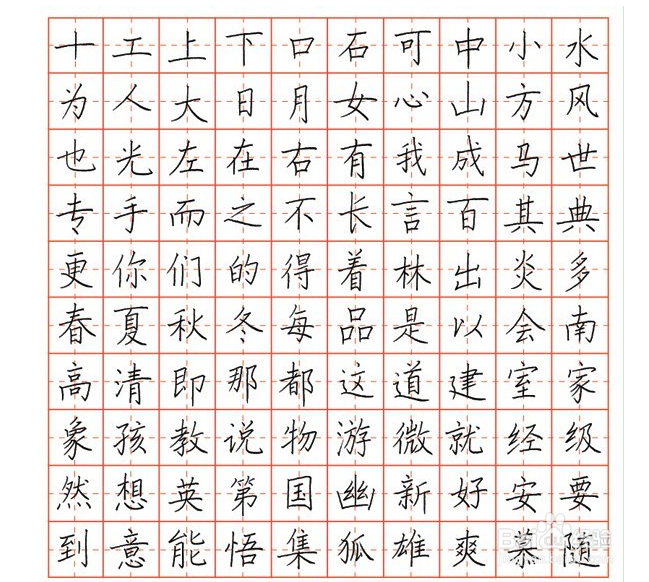 十工上下口石可中小水
为人大日月女心山方风
也光左在右有我成马世
专手而之不长言百其典
更你们的得着林出炎多
春夏秋冬每品是以会南
高清即那都这道建室家
象孩教说物游微就经级
然想英第国幽新好安要
到意能悟集狐雄爽慕随
Baidu经验